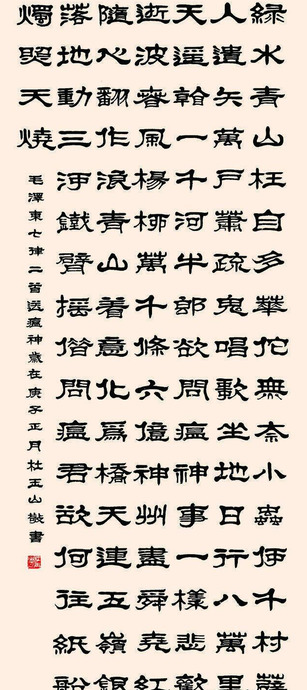 綠水青山枉自多華佗無奈小蟲伊千村薜
人遺矢萬戶蕭疏鬼唱歌坐地日行八萬里
天遥看一千河牛郎欲問瘟神事一樣悲歡
逝波春風楊柳萬千條六億神州盡舜堯紅
隨心翻作浪青山着意化為橋天連五嶺銀
落地動三河鐵臂搖借問瘟君欲何往紙船
燭照天燒
毛澤東七律二首送瘟神歲在庚子正月杜玉山敬書